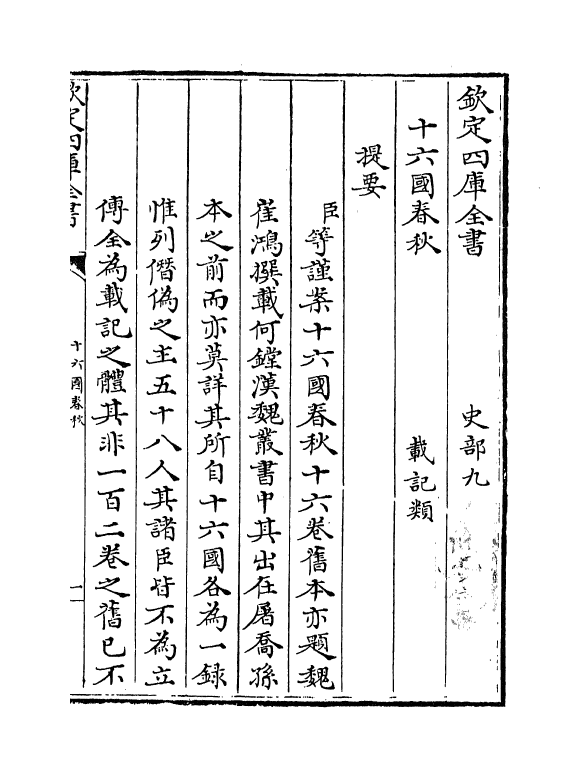 欽定四庫全書　史部九
十六國春秋　載記類
提要
臣等謹案十六國春秋十六卷舊本亦題魏
崔鴻撰載何鏜漢魏叢書中其出在屠喬孫
本之前而亦莫詳其所自十六國各為一録
惟列僭偽之主五十八人其諸臣皆不為立
傳全為載記之體其非一百二卷之舊已不
欽定四庫全書
十六國春秋
一